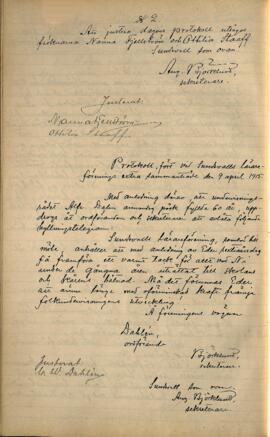 № 2.
Att justera dagens protokoll utsågos
fröknarna Nanna Kjellström och Othilia Staaff.
Sundsvall som ovan
Aug. Björklund,
sekreterare.
Justerat:
Nanna Kjellström
Othilia Staaff
Protokoll, fört vid Sundsvalls lärare-
förenings extra sammanträde den 9 april 1915.
Med anledning därav att undervisnings-
rådet Alfr. Dalin denna dag fyllt 60 år, upp-
drogs åt ordföranden och sekreteraren att avlåta följande
hyllningstelegram:
Sundsvalls lärareförening, samlad till
möte, anhåller att med anledning av Eder
få framföra ett varmt tack för allt vad Ni
under de gångna åren uträttat till skolans
och lärarekårens båtnad. Må det förunnas Eder
att ännu länge med oförminskad kraft främja
folkundervisningens utveckling!
Å föreningens vägnar
Dahlin,
ordförande
Björklund,
sekreterare.
Justerat
W. Dahlin
Sundsvall som ovan
Aug. Björklund,
sekreterare